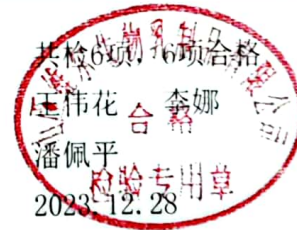 共检6项，6项合格
王伟花 李娜
合格
潘佩平
检验专用章
2023.12.28